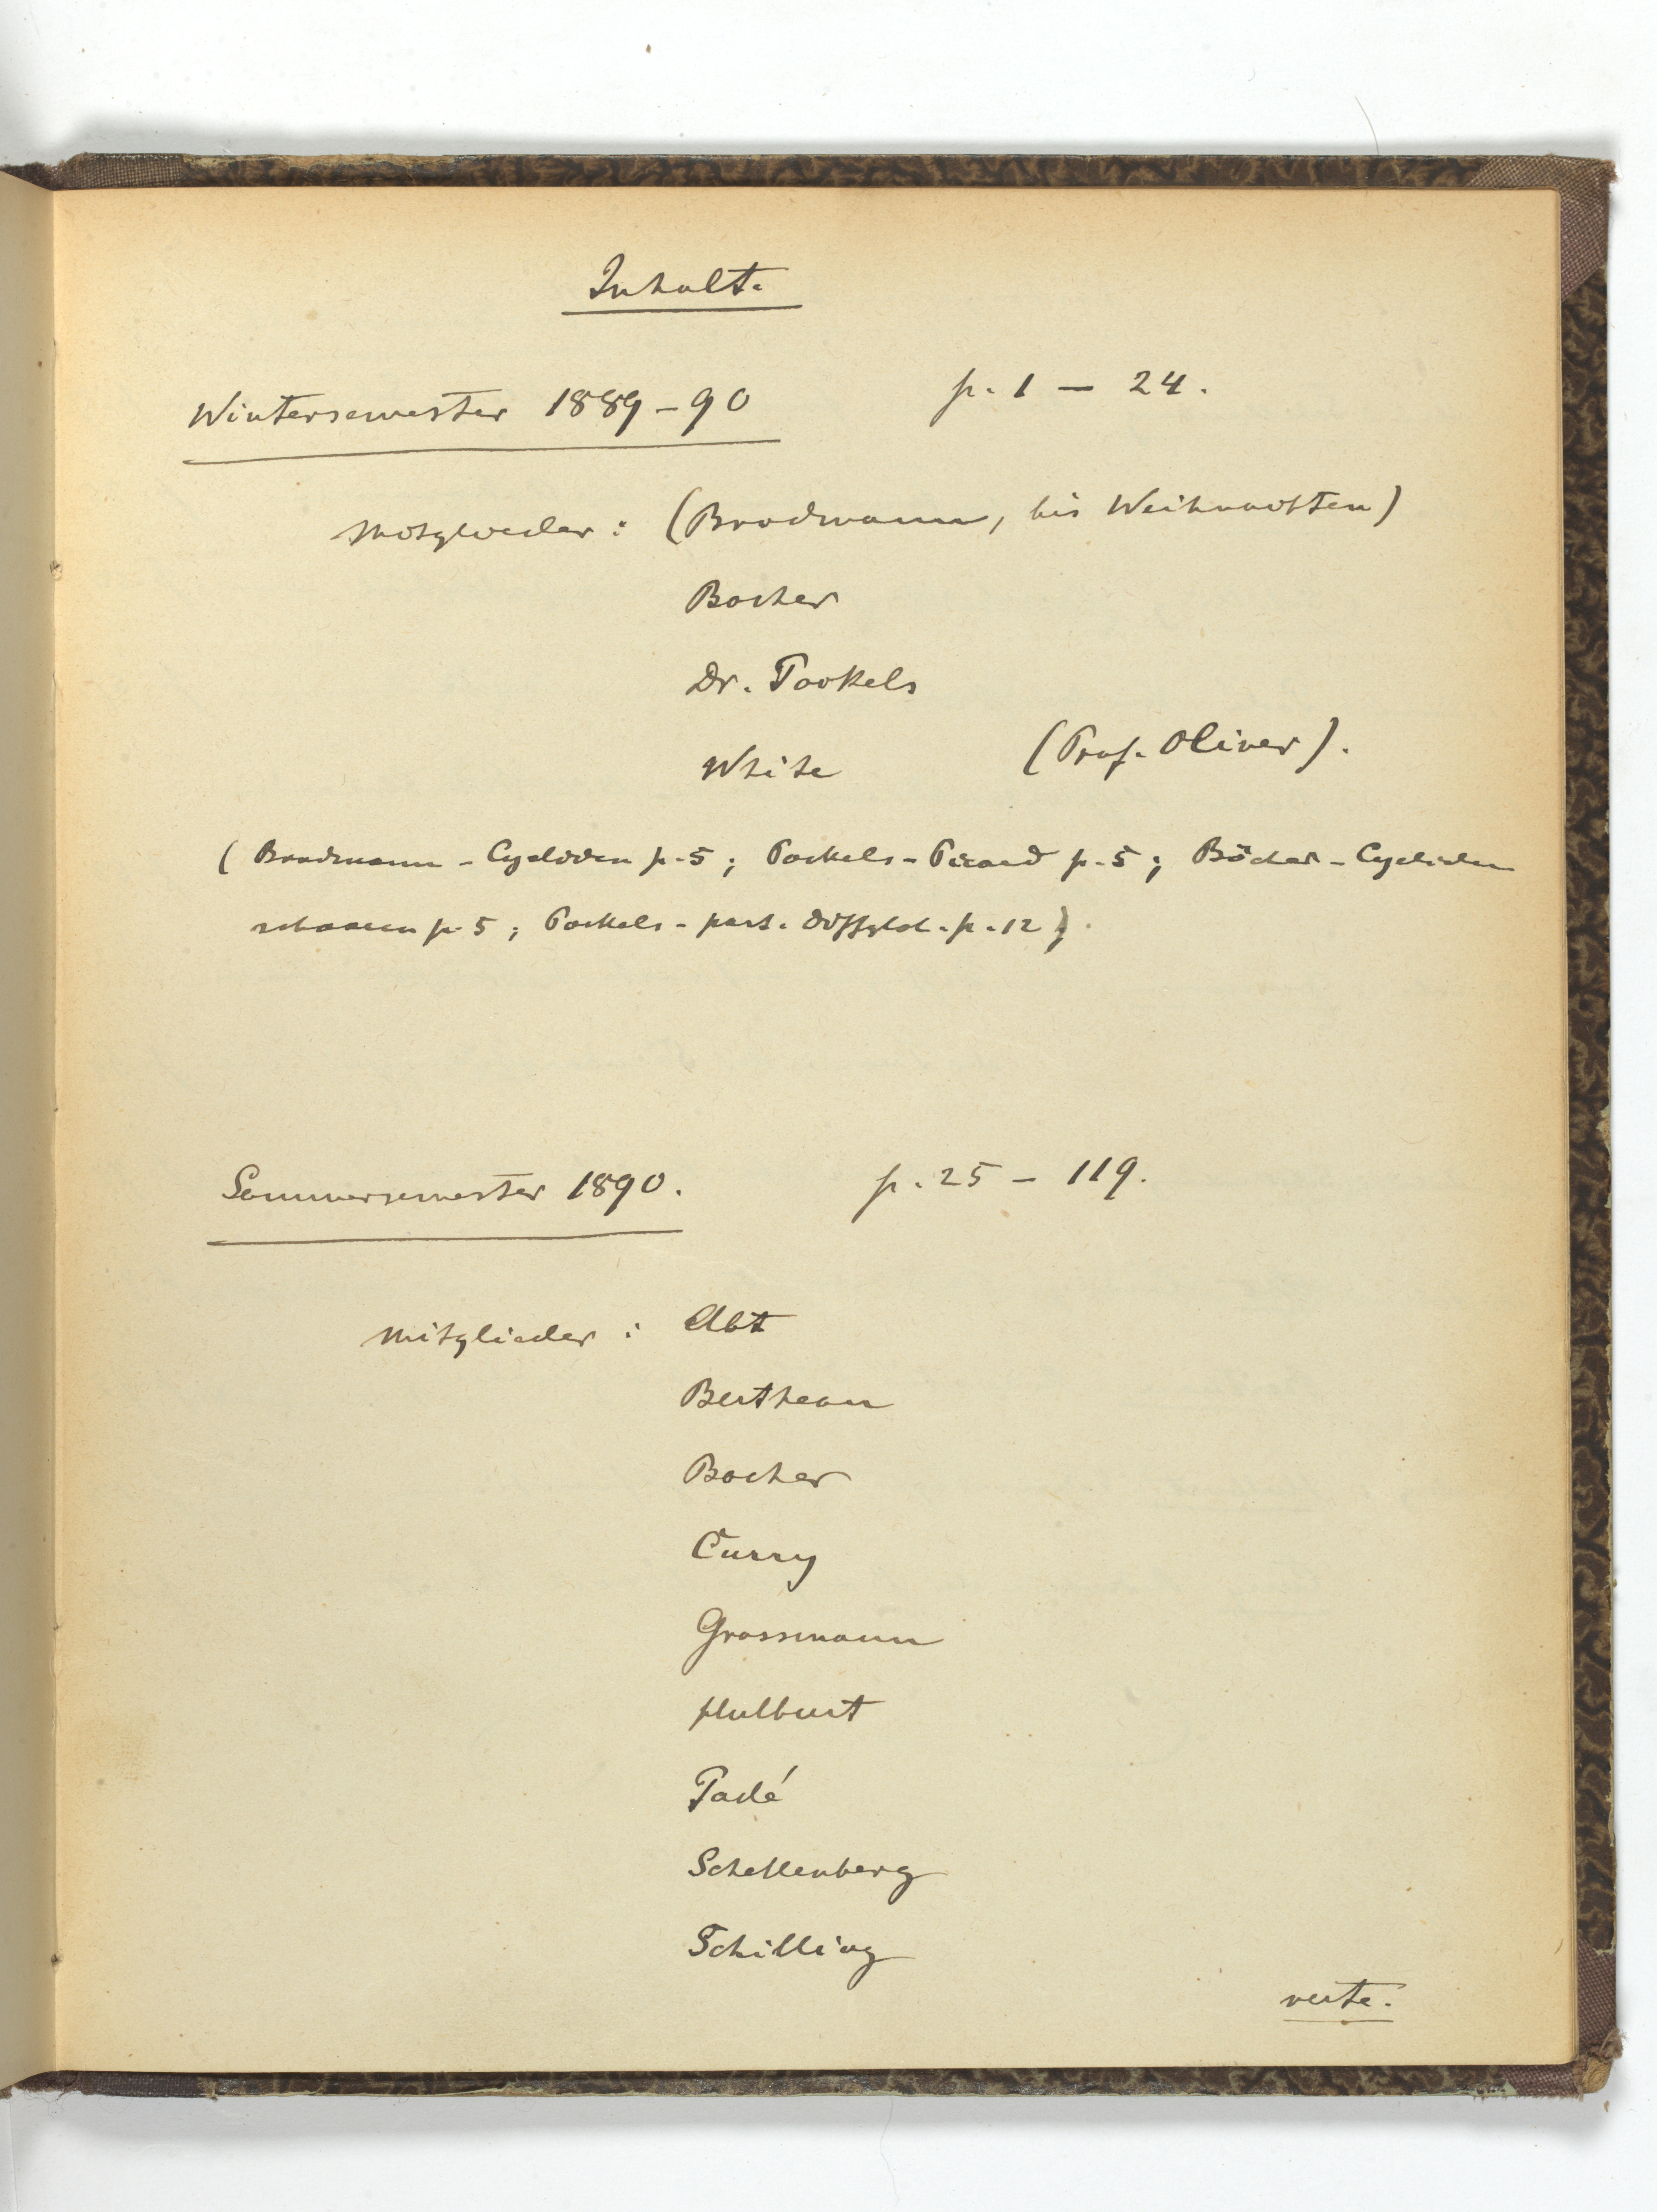 Inhalt.
Wintersemester 1889-90 p. 1 — 24.
Mitglieder : (Brodmann, bis Weihnachten)
Bocher
Dr. Pockels
White (Prof. Oliver).
( Brodmann - Cycliden p. 5 ; Pockels - Picard p. 5 ; Bôcher - Cycliden
p. 5 ; Pockels - part. Diffglch. p. 12 ).
Sommersemester 1890. p. 25 - 119.
Mitglieder : Abt
Bertheau
Bocher
Curry
Grassmann
Hulburt
Padé
Schellenberg
Schilling
verte.